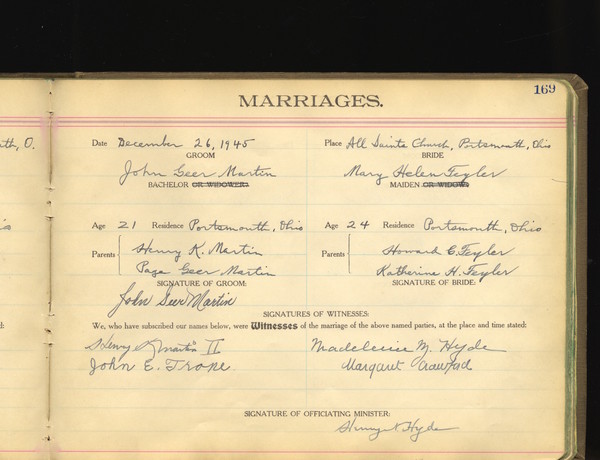 169
MARRIAGES.
th, O.
Date December 26, 1945 Place All Saints Church, Portsmouth, Ohio
GROOM BRIDE
John Geer Martin Mary Helen Feyler
BACHELOR OR WIDOWER: MAIDEN OR WIDOW:
Age 21 Residence Portsmouth, Ohio Age 24 Residence Portsmouth, Ohio
Parents Henry K. Martin Parents Howard C. Feyler
Page Geer Martin Katherine H. Feyler
SIGNATURE OF GROOM: SIGNATURE OF BRIDE:
John Geer Martin
SIGNATURES OF WITNESSES:
We, who have subscribed our names below, were Witnesses of the marriage of the above named parties, at the place and time stated:
Henry Martin II Madeleine M. Hyde
John E. Trone Margaret Crawford
SIGNATURE OF OFFICIATING MINISTER:
Henry N. Hyde